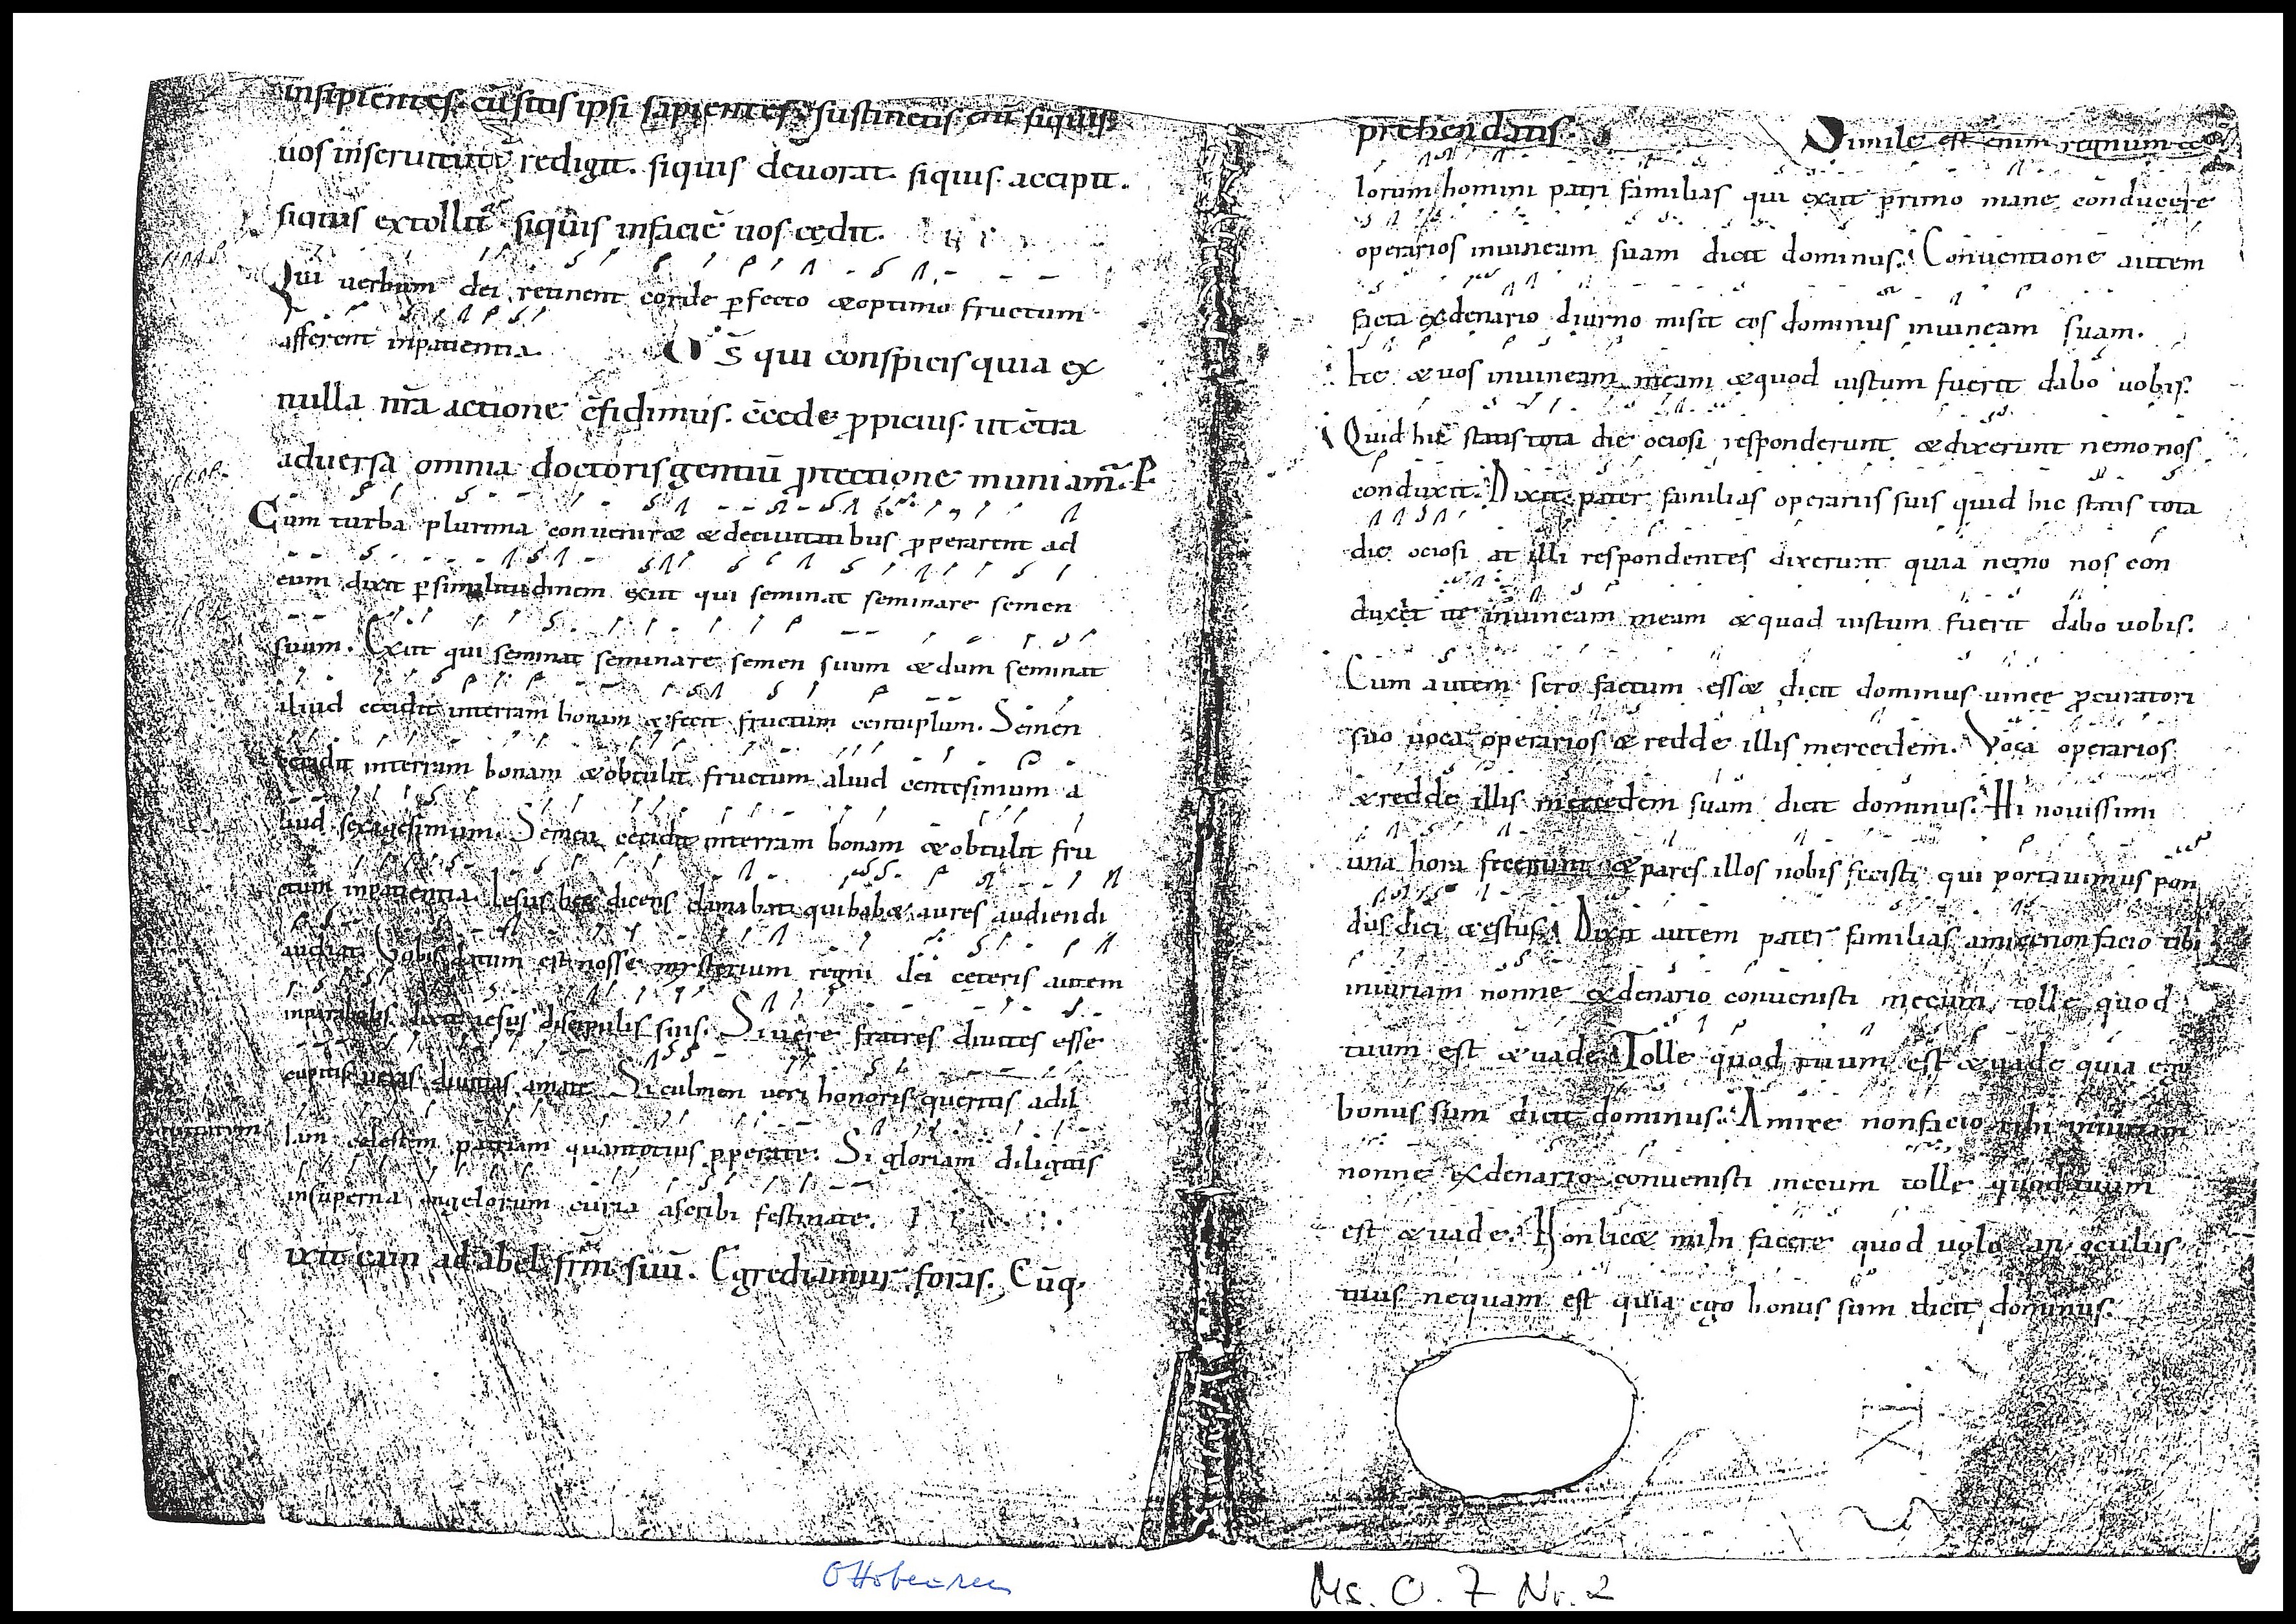 insipientes. cū sitis ipsi sapientes. sustinetis enī siquis
uos inseruitutē redigit. siquis deuorat. siquis accipit.
siquis extollit siquis infaciē uos cędit.
Qui uerbum dei retinent corde ꝑfecto & optimo fructum
afferent inpatientia. D̄S qui conspicis quia ex
nulla nr̄a actione c̄fidimus. c̄cede ꝓpicius. ut c̄tra
aduersa omnia doctoris gentiū ꝓtectione muniam̄. P
Cum turba plurima conuenir& & deciuitatibus ꝓperarent ad
eum dixit ꝑsimilitudinem exiit qui seminat seminare semen
suum. Exiit qui seminat seminare semen suum & dum seminat
aliud cecidit interram bonam & fecit fructum centuplum. Semen
cecidit interram bonam & obtulit fructum aliud centesimum a
liud sexagesimum. Semen cecidit interram bonam & obtulit fru
ctum inpatientia. Iesus hęc dicens clamabat qui hab& aures audiendi
audiat. Vobis datum est nosse mysterium regni dei ceteris autem
inparabolis dixit iesus discipulis suis. Si uere fratres diuites esse
cupitis ueras diuitias amate. Si culmen ueri honoris queritis adil
lam celestem patriam quantotius ꝓperate. Si gloriam diligitis
insuperna angelorum curia ascribi festinate.
ixit cain ad abel frm̄ suū. Egrediamur foras. Cūq;
prehendatis. Simile est enim regnum cę
lorum homini patri familias qui exiit primo mane conducere
operarios inuineam suam dicit dominus. Conuentione autem
facta ex denario diurno misit eos dominus inuineam suam.
Ite & uos inuineam meam & quod iustum fuerit dabo uobis.
Quid hic statis tota die ociosi responderunt & dixerunt nemo nos
conduxit. Dixit pater familias operariis suis quid hic statis tota
die ociosi at illi respondentes dixerunt quia nemo nos con
duxit ite inuineam meam & quod iustum fuerit dabo uobis.
Cum autem sero factum ess& dicit dominus uineę ꝓcuratori
suo uoca operarios & redde illis mercedem. Voca operarios
& redde illis mercedem suam dicit dominus. Hi nouissimi
una hora fecerunt & pares illos nobis fecisti qui portauimus pon
dus diei & estus. Dixit autem pater familias amice non facio tibi
iniuriam nonne ex denario conuenisti mecum tolle quod
tuum est & uade. Tolle quod tuum est & uade quia ego
bonus sum dicit dominus. Amice non facio tibi iniuriam
nonne ex denario conuenisti mecum tolle quod tuum
est & uade. Non lic& mihi facere quod uolo an oculus
tuus nequam est quia ego bonus sum dicit dominus.
XI.
Ottobeuren
Ms. O. 7 Nr. 2